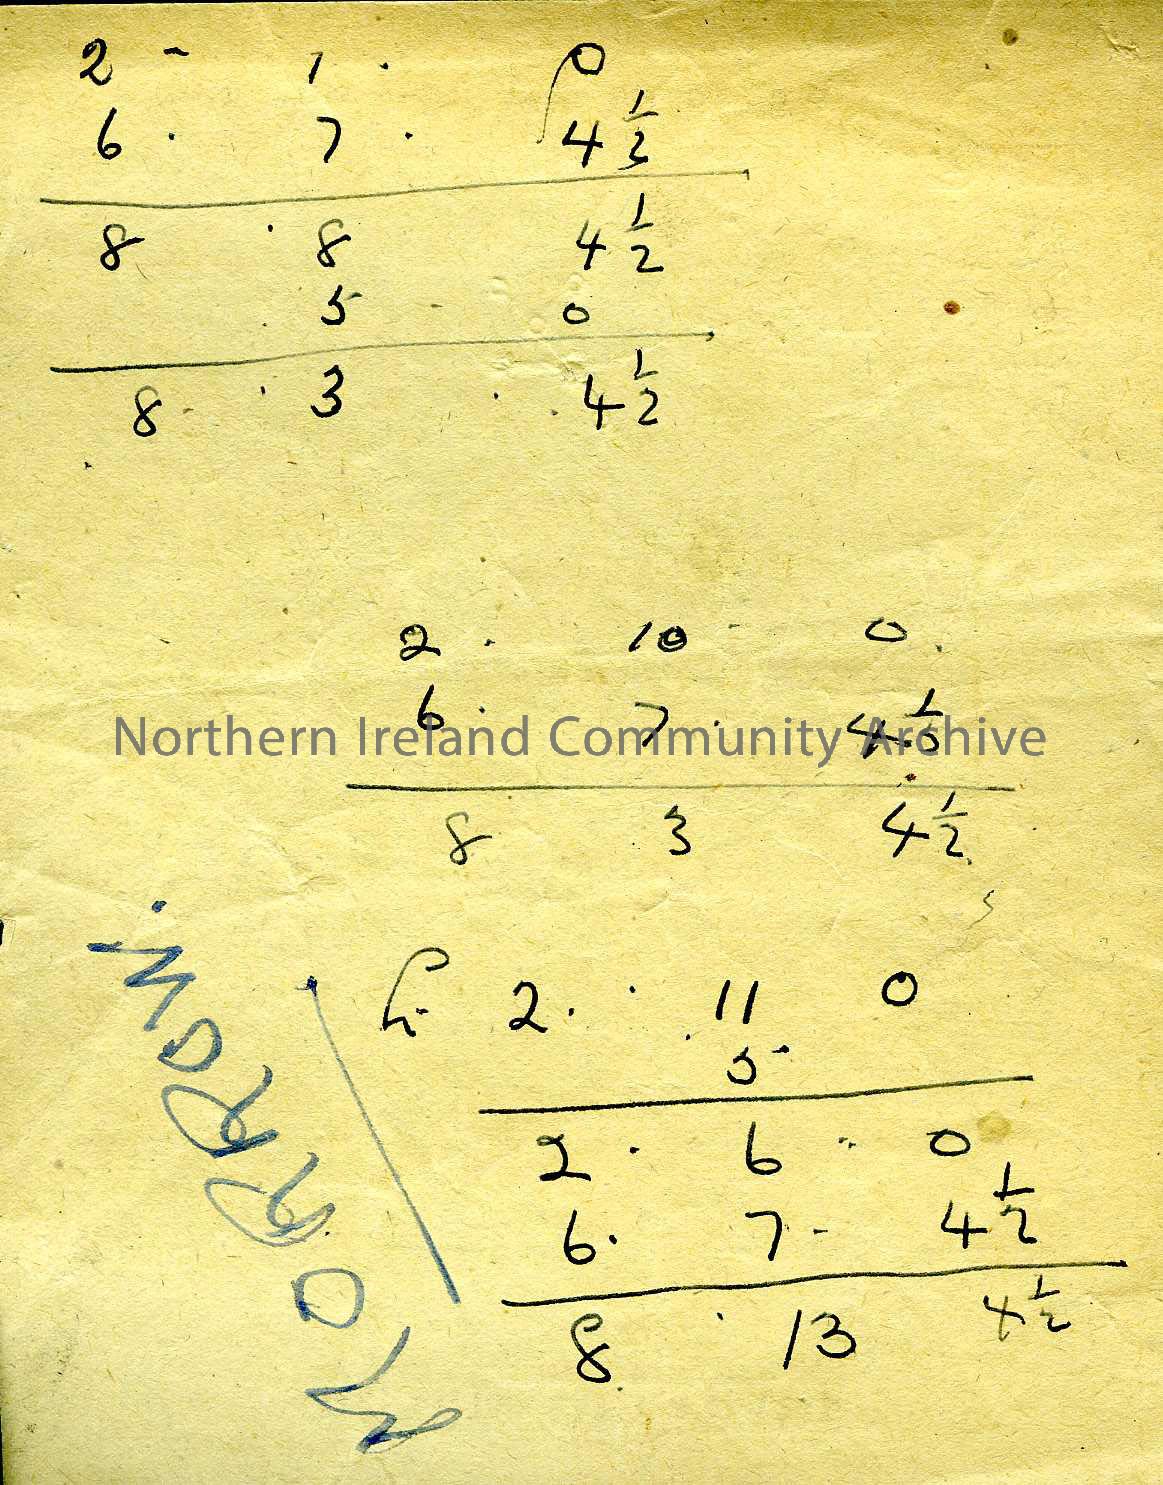 2 - 1 . 0
6 . 7 . 4 1/2
8 . 8 4 1/2
5 0
8 . 3 . 4 1/2
2 . 10 0
6 . 7 . 4 1/2
Northern Ireland Community Archive
8 3 4 1/2
2 . 11 0
5
2 . 6 . 0
6 . 7 - 4 1/2
8 . 13 4 1/2
MORROW.